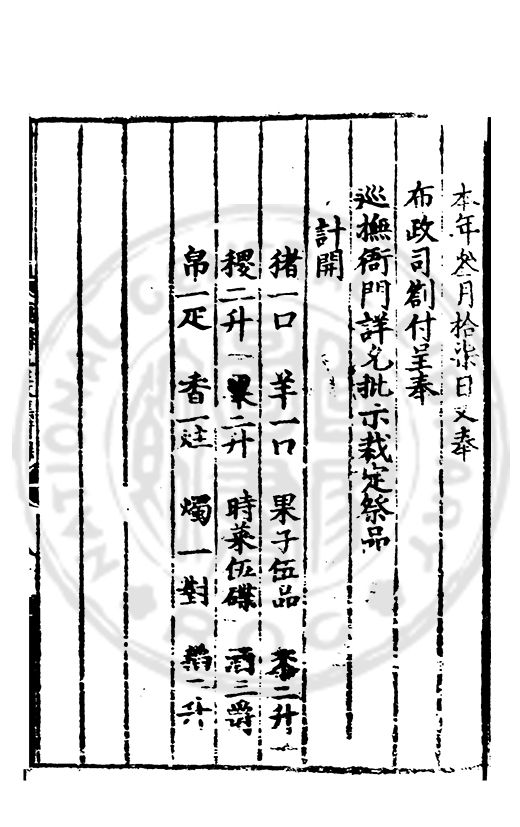 本年叁月拾柒日又奉
布政司劄付呈奉
巡撫衙門詳允批示裁定祭品
計開
猪一口 羊一口 果子伍品 黍二升
稷二升 粟二升 時菜伍碟 酒三爵
帛一疋 香一炷 燭一對 稻二升
NATIONAL CENTRAL LIBRARY